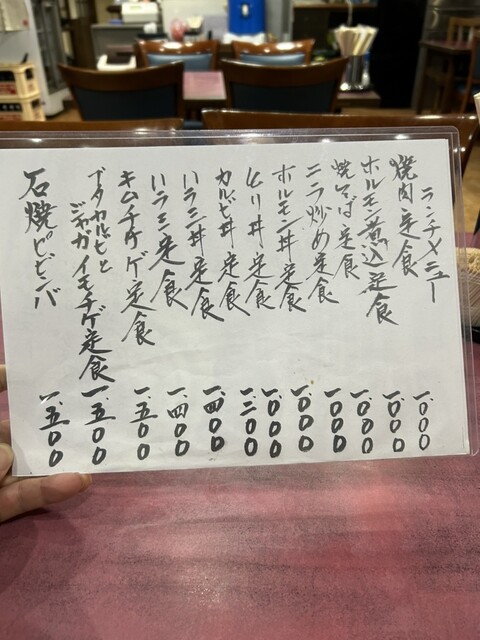 ランチメニュー
焼肉定食 一、000
ホルモン煮込定食 一、000
焼そば定食 一、000
ニラ炒め定食 一、000
ホルモン丼定食 一、000
とり丼定食 一、000
カルビ丼定食 一、二00
ハラミ丼定食 一、四00
ハラミ定食 一、四00
キムチチゲ定食 一、五00
ブタカルビと
ジャガイモチゲ定食 一、五00
石焼ピビンバ 一、五00